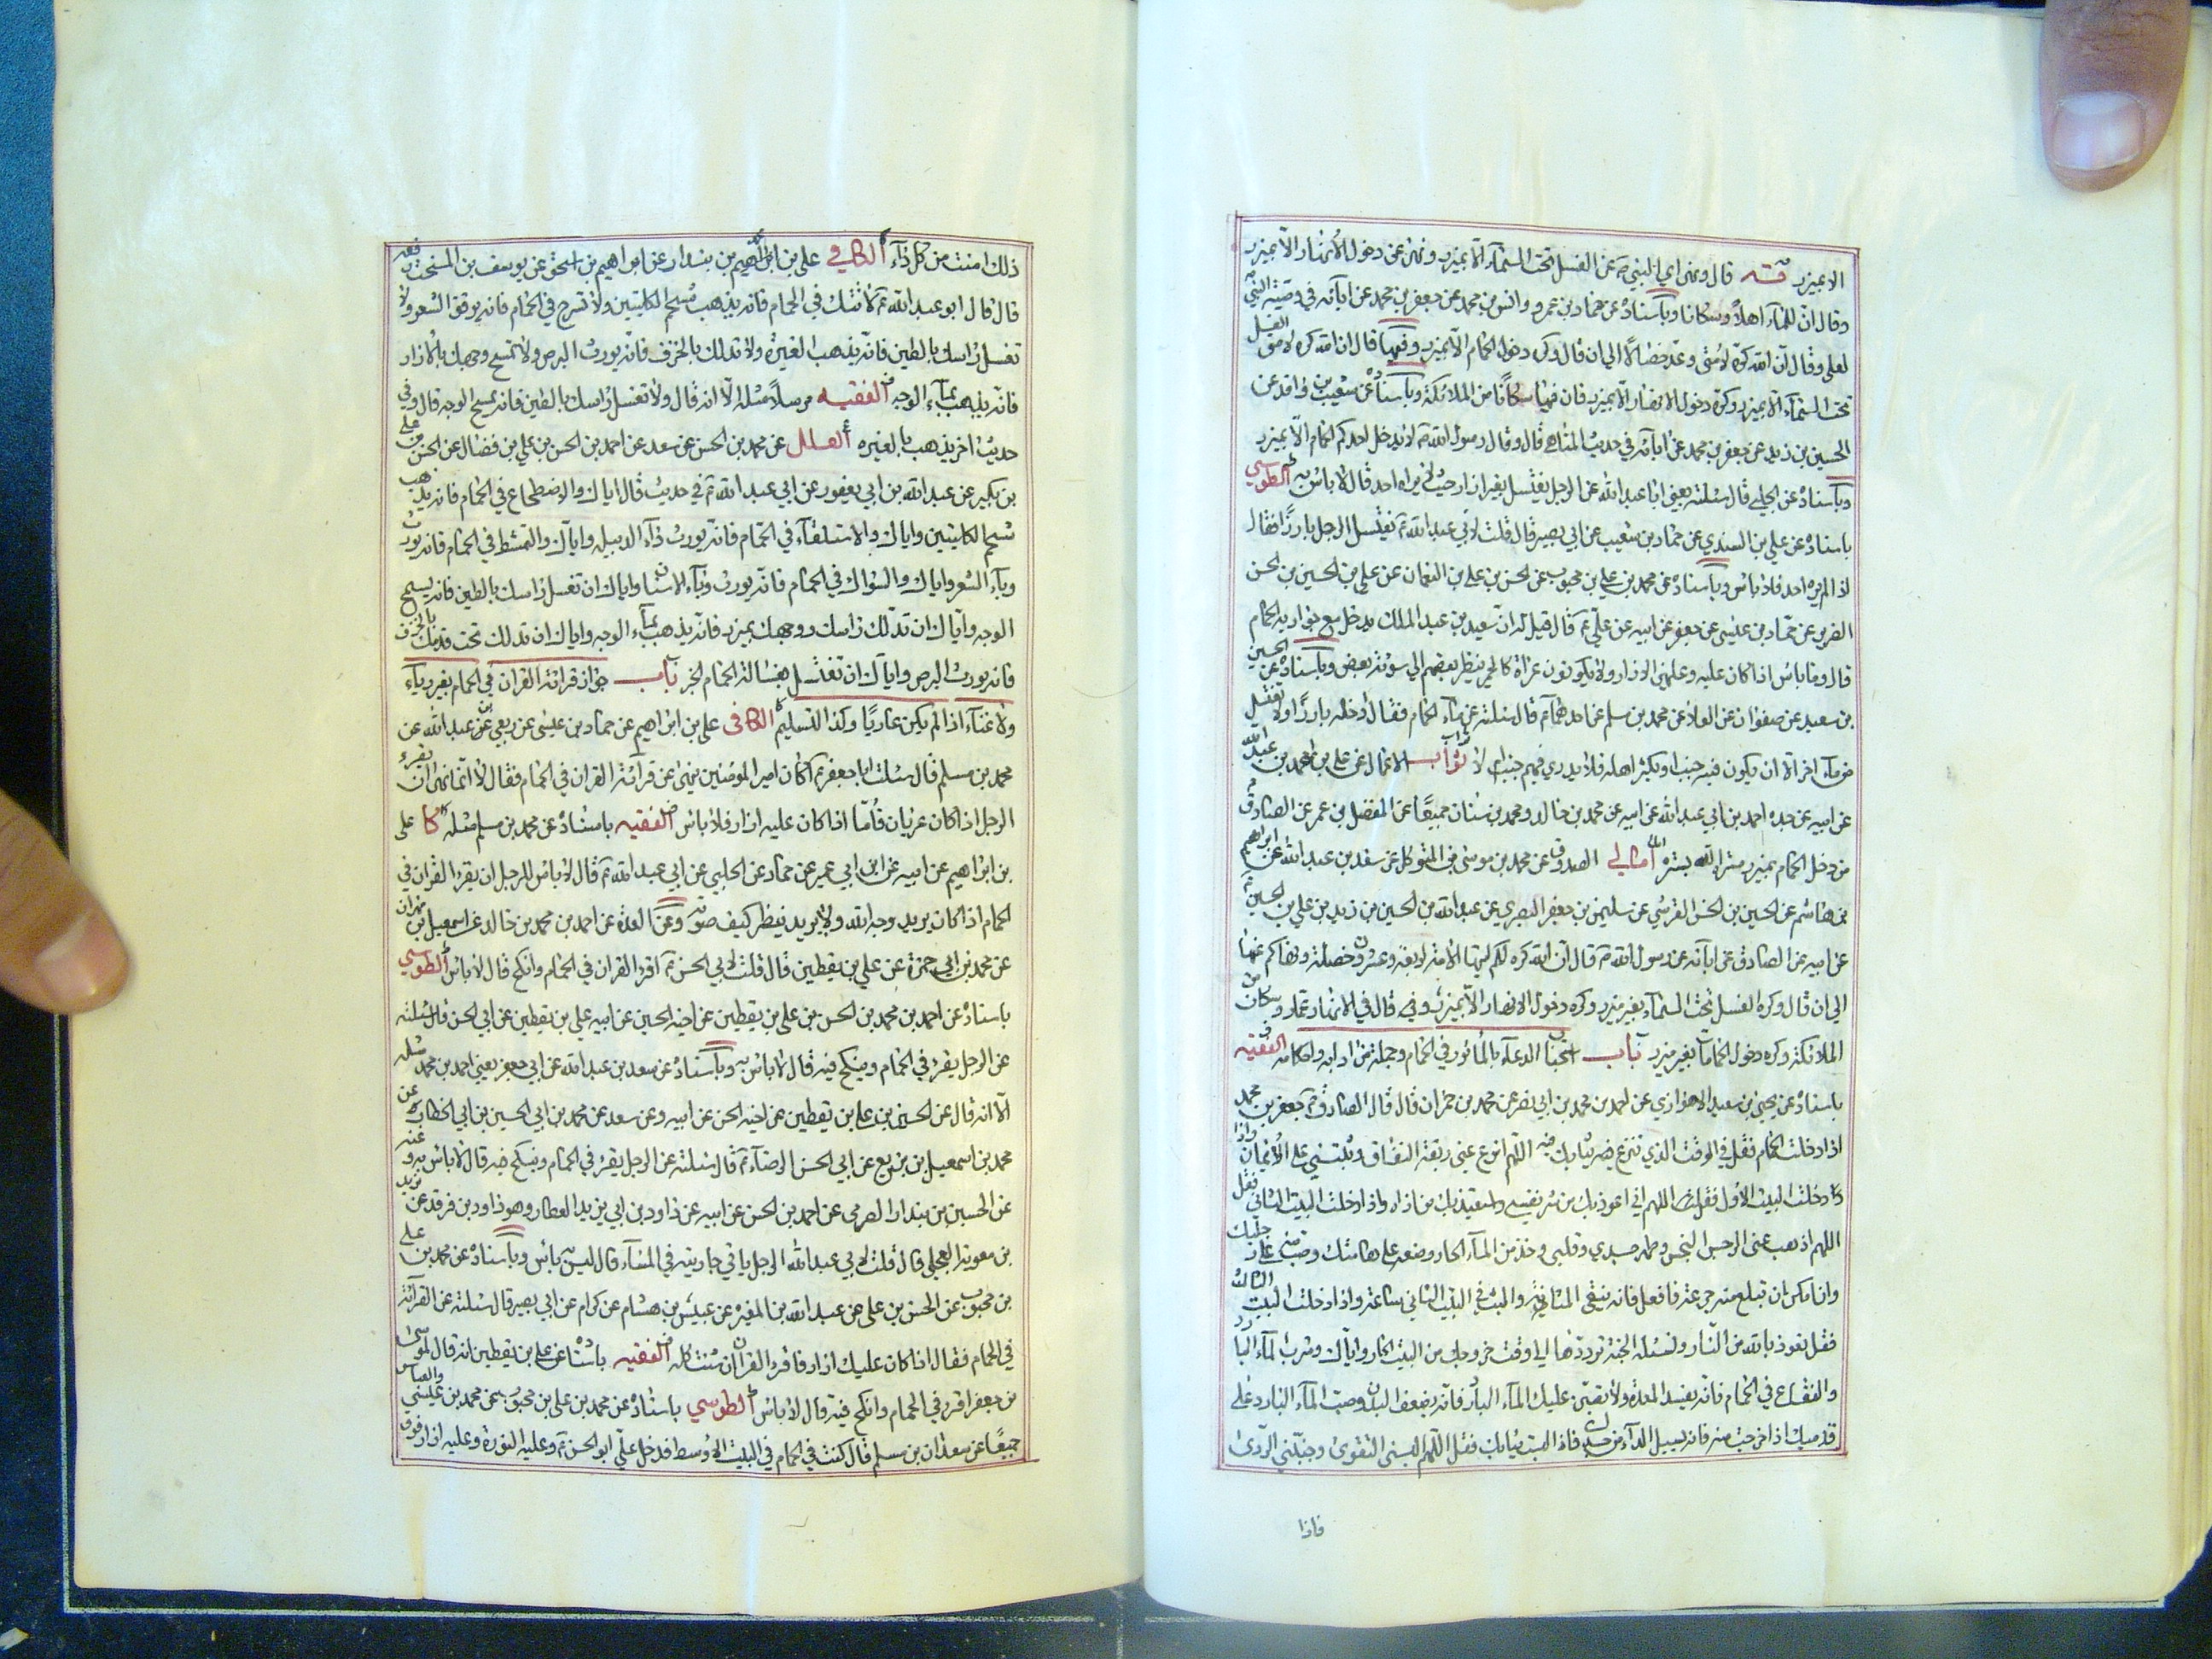 الا بميزر فته قال ونهى اي النبي ص عن الغسل تحت السماء الا بميزر ونهى عن دخول الانهار الا بميزر
وقال ان للماء اهلا وسكانا وباسناده عن حماد بن عمرو وانس بن محمد عن جعفر بن محمد عن ابائه في وصية النبي ص
لعلي وقال ان الله كره لامتي وعد خصالا الى ان قال وكره دخول الحمام الا بميزر وفيها قال ان الله كره لامتي الغسل
تحت السماء الا بميزر وكره دخول الانهار الا بميزر فان فيها سكانا من الملائكة وباسناده عن شعيب بن واقد عن
الحسين بن زيد عن جعفر بن محمد عن ابائه في حديث المناهي قال وقال رسول الله ص لا يدخل احدكم الحمام الا بميزر
وباسناده عن الحلبي قال سئلته يعني ابا عبد الله عن الرجل يغتسل بغير ازار حيث لا يراه احد قال لا باس به الطوسي
باسناده عن علي بن السندي عن حماد بن شعيب عن ابي بصير قال قلت لابي عبد الله ع يغتسل الرجل بارزا فقال
اذا لم يره احد فلا باس وباسناده عن محمد بن علي بن محبوب عن الحسن بن علي بن النعمان عن علي بن الحسين بن الحسن
الضرير عن حماد بن عيسى عن جعفر عن ابيه عن علي ع قال قيل له ان سعيد بن عبد الملك يدخل مع جواريه الحمام
قال وما باس اذا كان عليه وعليهن الازار ولا يكونون عراة كالحمر ينظر بعضهم الى سوئة بعض وباسناده عن الحسين
بن سعيد عن صفوان عن العلاء عن محمد بن مسلم عن احدهما ع قال سئلته عن ماء الحمام فقال ادخله بازار ولا تغتسل
من ماء اخر الا ان يكون فيه جنب او يكثر اهله فلا يدري فيهم جنب ام لا ثواب الاعمال عن علي بن احمد بن عبد الله
عن ابيه عن جده احمد بن ابي عبد الله عن ابيه عن محمد بن خالد ومحمد بن سنان جميعا عن المفضل بن عمر عن الصادق ع
من دخل الحمام بميزر ستره الله بستره امالي الصدوق عن محمد بن موسى بن المتوكل عن سعد بن عبد الله عن ابراهيم
بن هاشم عن الحسين بن الحسن القرشي عن سليمن بن جعفر البصري عن عبد الله بن الحسين بن زيد بن علي بن الحسين ع
عن ابيه عن الصادق عن ابائه عن رسول الله ص قال ان الله كره لكم ايتها الامة اربعة وعشرون خصلة ونهاكم عنها
الى ان قال وكره الغسل تحت السماء بغير ميزر وكره دخول الانهار الا بميزر وفيه قال في الانهار عمار وسكان من
الملائكة وكره دخول الحمامات بغير ميزر باب استحباب الدعاء بالمأثور في الحمام وجملة من ادابه واحكامه الفقيه
باسناده عن يحيى بن سعيد الاهوازي عن احمد بن محمد بن ابي نصر عن محمد بن حمران قال قال الصادق ع جعفر بن محمد
اذا دخلت الحمام فقل في الوقت الذي تنزع فيه ثيابك فيه اللهم انزع عني ربقة النفاق وثبتني على الايمان واذا
دخلت البيت الاول فقل اللهم اني اعوذ بك من شر نفسي واستعيذ بك من اذاه واذا دخلت البيت الثاني فقل
اللهم اذهب عني الرجس النجس وطهر جسدي وقلبي وخذ من الماء الحار وضعه على هامتك وصب منه على رجليك
وان امكن ان تبلع منه جرعة فافعل فانه ينقي المثانة والبث في البيت الثاني ساعة واذا دخلت البيت الثالث
فقل نعوذ بالله من النار ونسئله الجنة ترددها الى وقت خروجك من البيت الحار واياك وشرب الماء البارد
والفقاع في الحمام فانه يفسد المعدة ولا تصبن عليك الماء البارد فانه يضعف البدن وصب الماء البارد على
قدميك اذا خرجت منه فانه يسل الداء من جسدك فاذا لبست ثيابك فقل اللهم البسني التقوى وجنبني الردى
فاذا
ذلك امنت من كل داء الكافي علي بن ابراهيم بن بندار عن ابراهيم بن اسحق عن يوسف بن السخت رفعه
قال قال ابو عبد الله ع لا تتك في الحمام فانه يذهب شحم الكليتين ولا تسرح في الحمام فانه يرقق الشعر ولا
تغسل راسك بالطين فانه يذهب الغيرة ولا تدلك بالخزف فانه يورث البرص ولا تمسح وجهك بالازار
فانه يذهب بماء الوجه الفقيه مرسلا مثله الا انه قال ولا تغسل راسك بالطين فانه يسمج الوجه قال وفي
حديث اخر يذهب بالغيرة العلل عن محمد بن الحسن عن سعد عن احمد بن الحسن بن علي بن فضال عن الحسن بن علي
بن بكير عن عبد الله بن ابي يعفور عن ابي عبد الله ع في حديث قال اياك والاضطجاع في الحمام فانه يذهب
شحم الكليتين واياك والاستلقاء في الحمام فانه يورث داء الدبيلة واياك والتمشط في الحمام فانه يورث
وباء الشعر واياك والسواك في الحمام فانه يورث وباء الاسنان واياك ان تغسل راسك بالطين فانه يسمج
الوجه واياك ان تدلك راسك ووجهك بميزر فانه يذهب بماء الوجه واياك ان تدلك تحت قدميك بالخزف
فانه يورث البرص واياك ان تغتسل بغسالة الحمام الخبر باب جواز قرائة القران في الحمام بغير رياء
ولا غناء اذا لم يكن عاريا وكذا التسليم الكافي علي بن ابراهيم عن حماد بن عيسى عن ربعي بن عبد الله عن
محمد بن مسلم قال سئلت ابا جعفر ع اكان امير المؤمنين ينهى عن قرائة القران في الحمام فقال لا انما نهى ان يقرء
الرجل اذا كان عريان فاما اذا كان عليه ازار فلا باس الفقيه باسناده عن محمد بن مسلم مثله كا علي
بن ابراهيم عن ابيه عن ابن ابي عمير عن حماد عن الحلبي عن ابي عبد الله ع قال لا باس للرجل ان يقرء القران في
الحمام اذا كان يريد وجه الله ولا يريد ينظر كيف صوته وعن العدة عن احمد بن محمد بن خالد عن اسمعيل بن مهران
عن محمد بن ابي حمزة عن علي بن يقطين قال قلت لابي الحسن ع اقرء القران في الحمام وانكح قال لا باس الطوسي
باسناده عن احمد بن محمد بن الحسن بن علي بن يقطين عن اخيه الحسين عن ابيه علي بن يقطين عن ابي الحسن قال سئلته
عن الرجل يقرء في الحمام وينكح فيه قال لا باس به وباسناده عن سعد بن عبد الله عن ابي جعفر يعني احمد بن محمد مثله
الا انه قال عن الحسين بن علي بن يقطين عن اخيه الحسن عن ابيه وعن سعد عن محمد بن ابي الحسين بن ابي الخطاب عن
محمد بن اسمعيل بن بزيع عن ابي الحسن الرضا ع قال سئلته عن الرجل يقرء في الحمام وينكح فيه قال لا باس به وعنه
عن الحسين بن بندار الصرمي عن احمد بن الحسن عن ابيه عن داود بن ابي يزيد العطار وهو داود بن فرقد عن بريد
بن معوية العجلي قال قلت لابي عبد الله الرجل ياتي جاريته في الماء قال ليس به باس وباسناده عن محمد بن علي
بن محبوب عن الحسن بن علي عن عبد الله بن المغيرة عن عبيس بن هشام عن كرام عن ابي بصير قال سئلته عن القرائة
في الحمام فقال اذا كان عليك ازار فاقرء القران ان شئت كله الفقيه باسناده عن علي بن يقطين انه قال لموسى
بن جعفر اقرء في الحمام وانكح فيه قال لا باس الطوسي باسناده عن محمد بن علي بن محبوب عن محمد بن عيسى والعباس
جميعا عن سعدان بن مسلم قال كنت في الحمام في البيت الاوسط فدخل علي ابو الحسن ع وعليه النورة وعليه ازار فوق